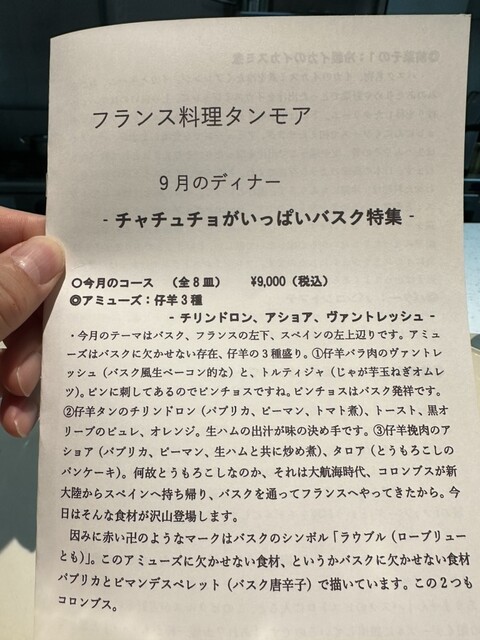 フランス料理タンモア
9月のディナー
- チャチュチョがいっぱいバスク特集 -
○今月のコース （全８皿） ¥9,000（税込）
◎アミューズ：仔羊３種
- チリンドロン、アショア、ヴァントレッシュ -
・今月のテーマはバスク、フランスの左下、スペインの左上辺りです。アミュ
ーズはバスクに欠かせない存在、仔羊の３種盛り。①仔羊バラ肉のヴァントレ
ッシュ（バスク風生ベーコン的な）と、トルティジャ（じゃが芋玉ねぎオムレ
ツ）。ピンに刺してあるのでピンチョスですね。ピンチョスはバスク発祥です。
②仔羊タンのチリンドロン（パプリカ、ピーマン、トマト煮）、トースト、黒オ
リーブのピュレ、オレンジ。生ハムの出汁が味の決め手です。③仔羊挽肉のア
ショア（パプリカ、ピーマン、生ハムと共に炒め煮）、タロア（とうもろこしの
パンケーキ）。何故とうもろこしなのか、それは大航海時代、コロンブスが新
大陸からスペインへ持ち帰り、バスクを通ってフランスへやってきたから。今
日はそんな食材が沢山登場します。
因みに赤い卍のようなマークはバスクのシンボル「ラウブル（ローブリュー
とも）」。このアミューズに欠かせない食材、というかバスクに欠かせない食材
パプリカとピマンデスペレット（バスク唐辛子）で描いています。この２つも
コロンブス。